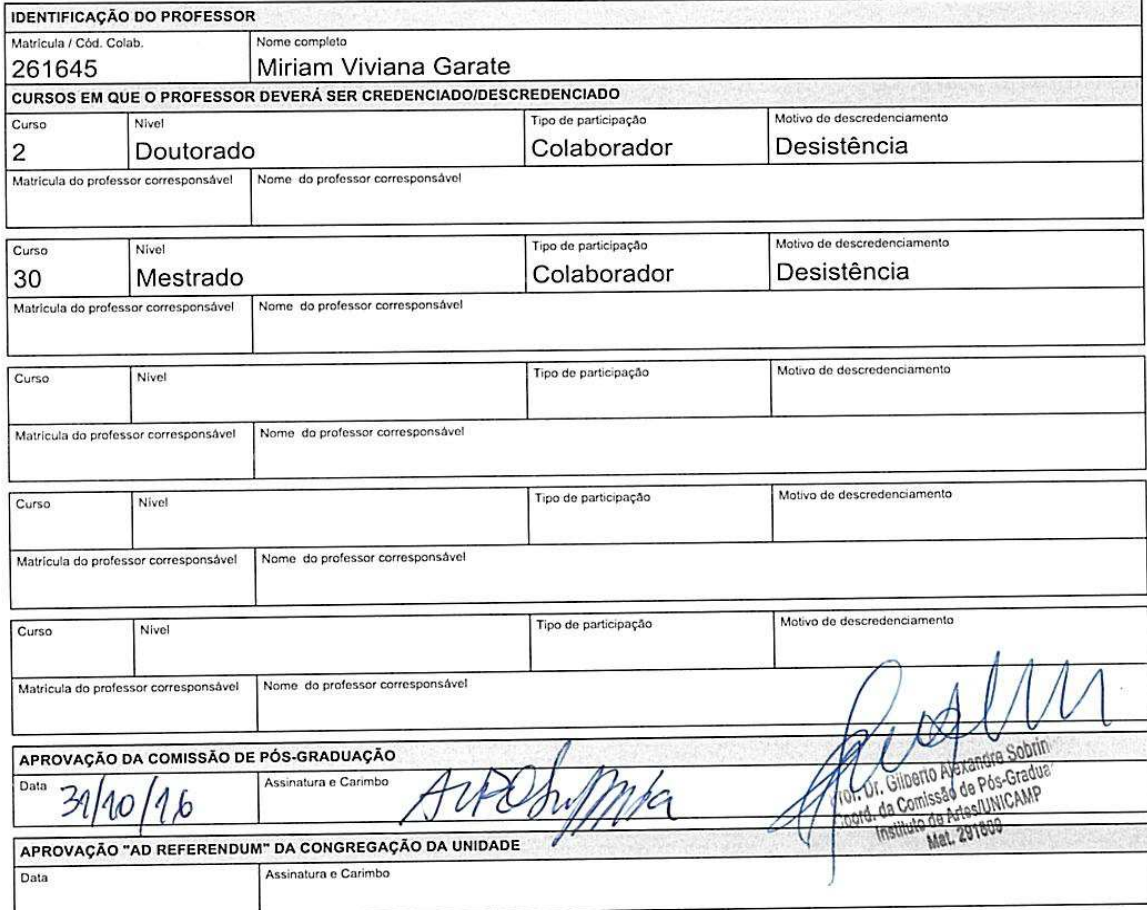 IDENTIFICAÇÃO DO PROFESSOR
Matrícula / Cód. Colab. Nome completo
261645 Miriam Viviana Garate
CURSOS EM QUE O PROFESSOR DEVERÁ SER CREDENCIADO/DESCREDENCIADO
Curso Nível Tipo de participação Motivo de descredenciamento
2 Doutorado Colaborador Desistência
Matrícula do professor corresponsável Nome do professor corresponsável
Curso Nível Tipo de participação Motivo de descredenciamento
30 Mestrado Colaborador Desistência
Matrícula do professor corresponsável Nome do professor corresponsável
Curso Nível Tipo de participação Motivo de descredenciamento
Matrícula do professor corresponsável Nome do professor corresponsável
Curso Nível Tipo de participação Motivo de descredenciamento
Matrícula do professor corresponsável Nome do professor corresponsável
Curso Nível Tipo de participação Motivo de descredenciamento
Matrícula do professor corresponsável Nome do professor corresponsável
APROVAÇÃO DA COMISSÃO DE PÓS-GRADUAÇÃO
Data Assinatura e Carimbo
31/10/16
Prof. Dr. Gilberto Alexandre Sobrin
Coord. da Comissão de Pós-Gradua
Instituto de Artes/UNICAMP
Mat. 291609
APROVAÇÃO "AD REFERENDUM" DA CONGREGAÇÃO DA UNIDADE
Data Assinatura e Carimbo